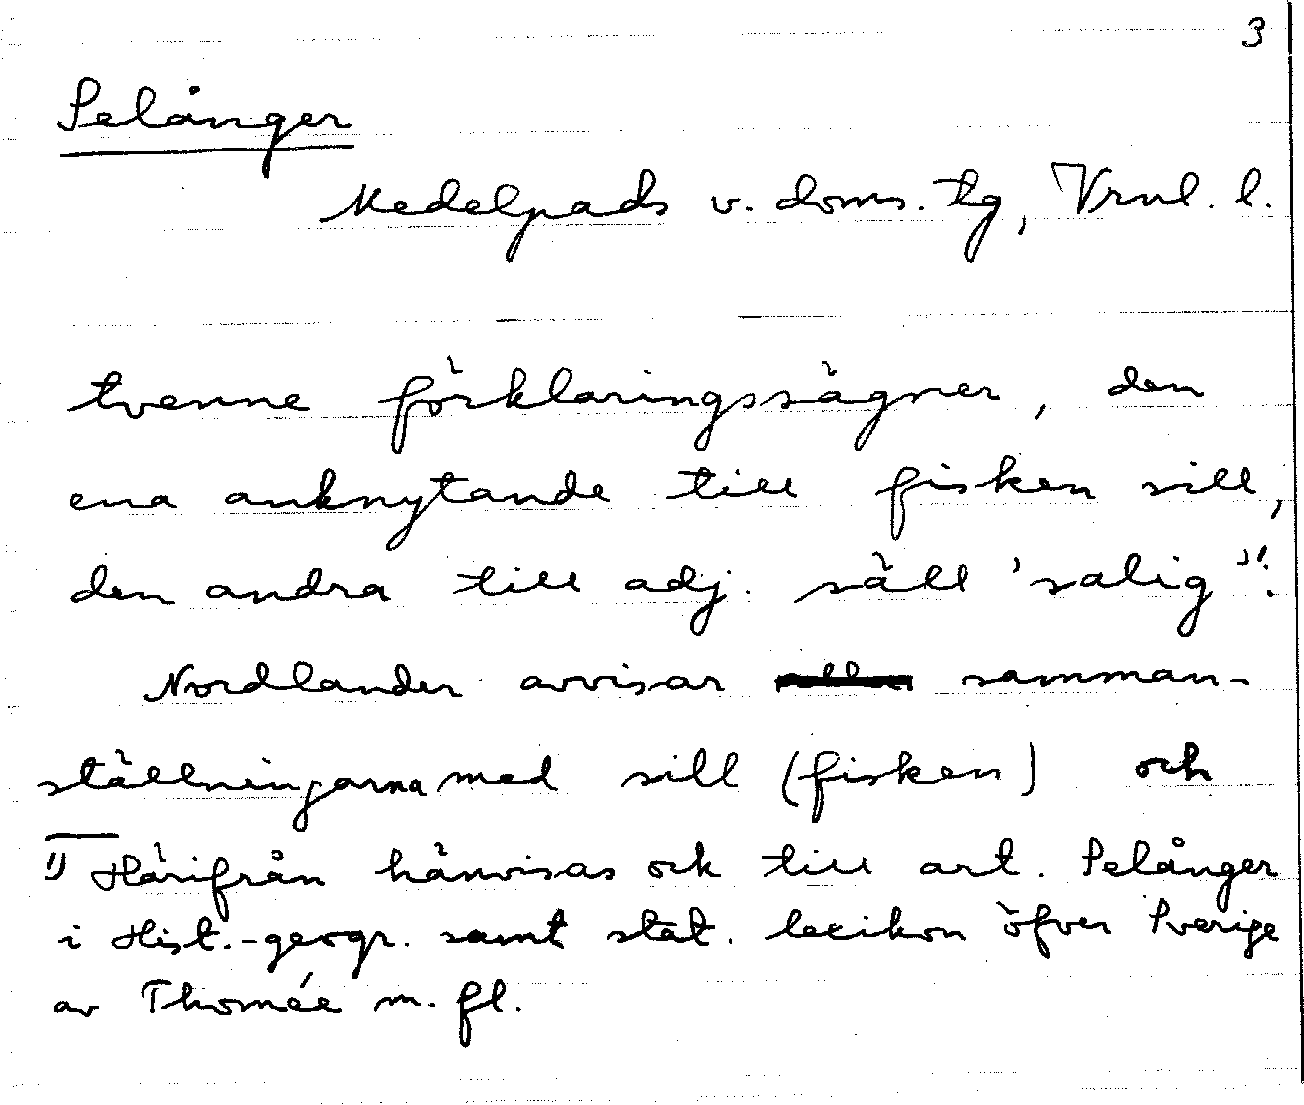 3
Selånger
Medelpads v. doms. tg, Vrnl. l.
tvenne förklaringssägner, den
ena anknytande till fisken sill,
den andra till adj. säll 'salig' 1).
Nordlander avvisar samman-
ställningarna med sill (fisken) och
1) Härifrån hänvisas ock till art. Selånger
i Hist.-geogr. samt stat. lexikon öfver Sverige
av Thomée m. fl.